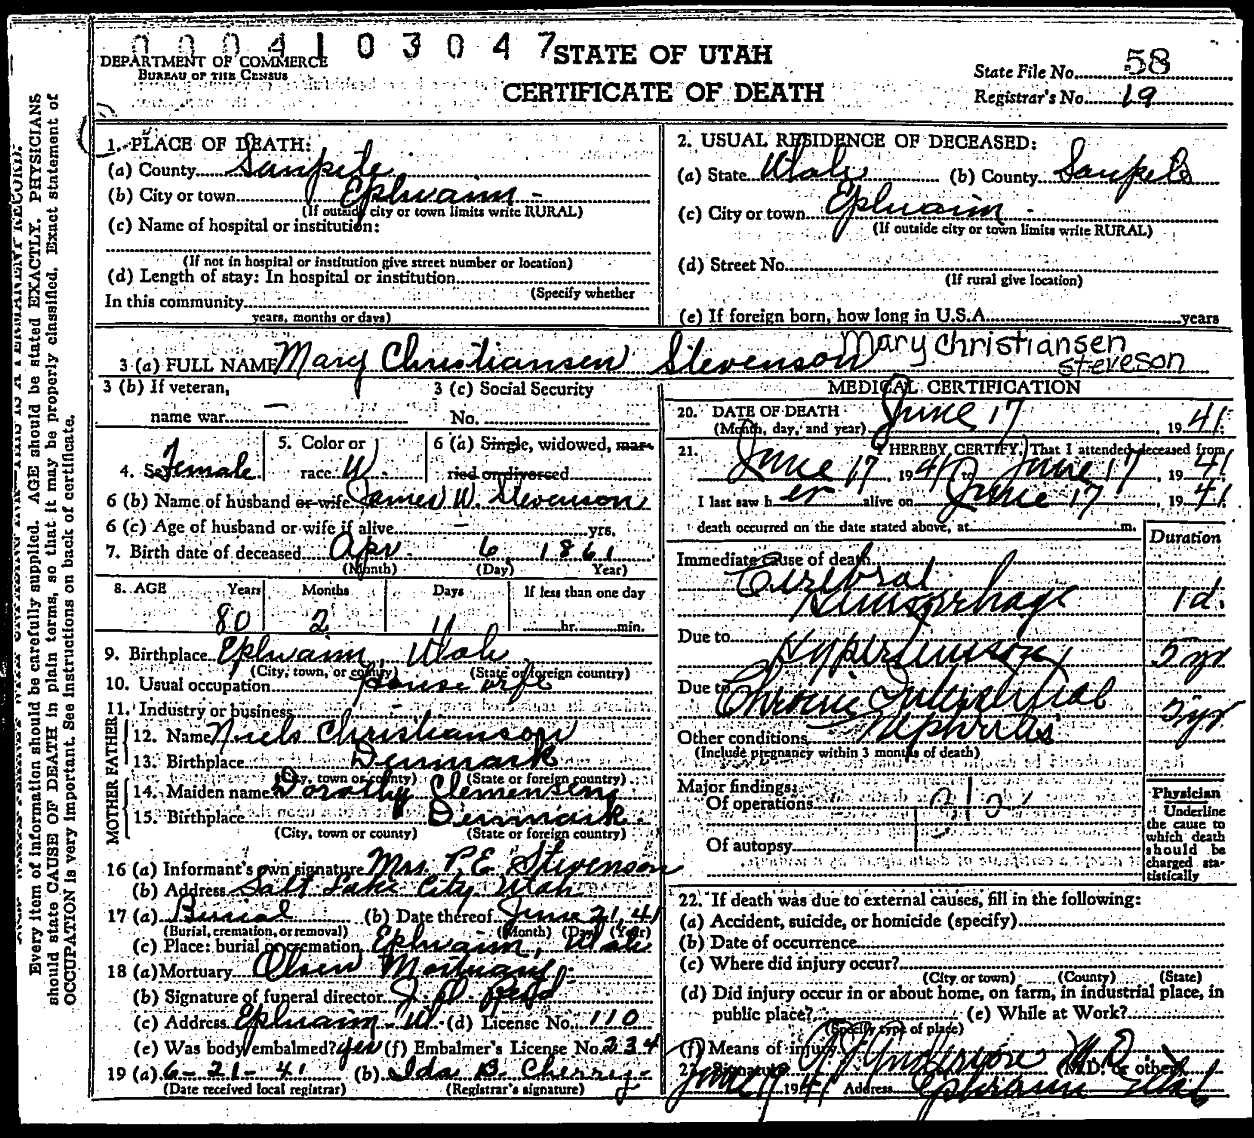 0004103047
STATE OF UTAH
CERTIFICATE OF DEATH
DEPARTMENT OF COMMERCE
BUREAU OF THE CENSUS
State File No. 58
Registrar's No. 19
Every item of information should be carefully supplied. AGE should be stated EXACTLY. PHYSICIANS
should state CAUSE OF DEATH in plain terms, so that it may be properly classified. Exact statement of
OCCUPATION is very important. See instructions on back of certificate.
1. PLACE OF DEATH:
(a) County Sanpete
(b) City or town Ephraim -
(If outside city or town limits write RURAL)
(c) Name of hospital or institution:
(If not in hospital or institution give street number or location)
(d) Length of stay: In hospital or institution
(Specify whether
In this community
years, months or days)
2. USUAL RESIDENCE OF DECEASED:
(a) State Utah (b) County Sanpete
(c) City or town Ephraim -
(If outside city or town limits write RURAL)
(d) Street No.
(If rural give location)
(e) If foreign born, how long in U.S.A. years
3 (a) FULL NAME Mary Christiansen Stevenson Mary Christiansen
Steveson
3 (b) If veteran, 3 (c) Social Security
name war — No.
4. Sex Female 5. Color or race W. 6 (a) Single, widowed, married or divorced
6 (b) Name of husband or wife James W. Stevenson
6 (c) Age of husband or wife if alive — yrs.
7. Birth date of deceased Apr. 6 1861
(Month) (Day) (Year)
8. AGE Years Months Days If less than one day
80 2 11 hr. min.
9. Birthplace Ephraim, Utah
(City, town, or county) (State or foreign country)
10. Usual occupation Housewife
11. Industry or business -
FATHER
12. Name Niels Christianson
13. Birthplace Denmark
(City, town or county) (State or foreign country)
MOTHER
14. Maiden name Dorothy Clemensen
15. Birthplace Denmark.
(City, town or county) (State or foreign country)
16 (a) Informant's own signature Mrs. P.E. Stevenson
(b) Address Salt Lake City, Utah
17 (a) Burial (b) Date thereof June 21, 41
(Burial, cremation, or removal) (Month) (Day) (Year)
(c) Place: burial or cremation Ephraim, Utah
18 (a) Mortuary Olsen Mortuary
(b) Signature of funeral director
(c) Address Ephraim - Ut. (d) License No. 110
(e) Was body embalmed? yes (f) Embalmer's License No. 234
19 (a) 6-21-41 (b) Ida B. Cherry
(Date received local registrar) (Registrar's signature)
MEDICAL CERTIFICATION
20. DATE OF DEATH June 17, 1941
(Month, day, and year)
21. I HEREBY CERTIFY, That I attended deceased from
June 17 1941, June 17, 1941
I last saw her alive on June 17, 1941
death occurred on the date stated above, at m.
Duration
Immediate cause of death
Cerebral
Hemorrhage 1 d.
Due to Hypertension 5 yr
Due to Chronic Interstitial
Nephritis 5 yr
Other conditions
(Include pregnancy within 3 months of death)
Major findings:
Of operations
Of autopsy
Physician
Underline
the cause to
which death
should be
charged sta-
tistically
22. If death was due to external causes, fill in the following:
(a) Accident, suicide, or homicide (specify)
(b) Date of occurrence
(c) Where did injury occur?
(City or town) (County) (State)
(d) Did injury occur in or about home, on farm, in industrial place, in
public place? (e) While at Work?
(Specify type of place)
(f) Means of injury
23. Signature Anderson M.D. (M.D. or other)
June 1941 Address Ephraim Utah